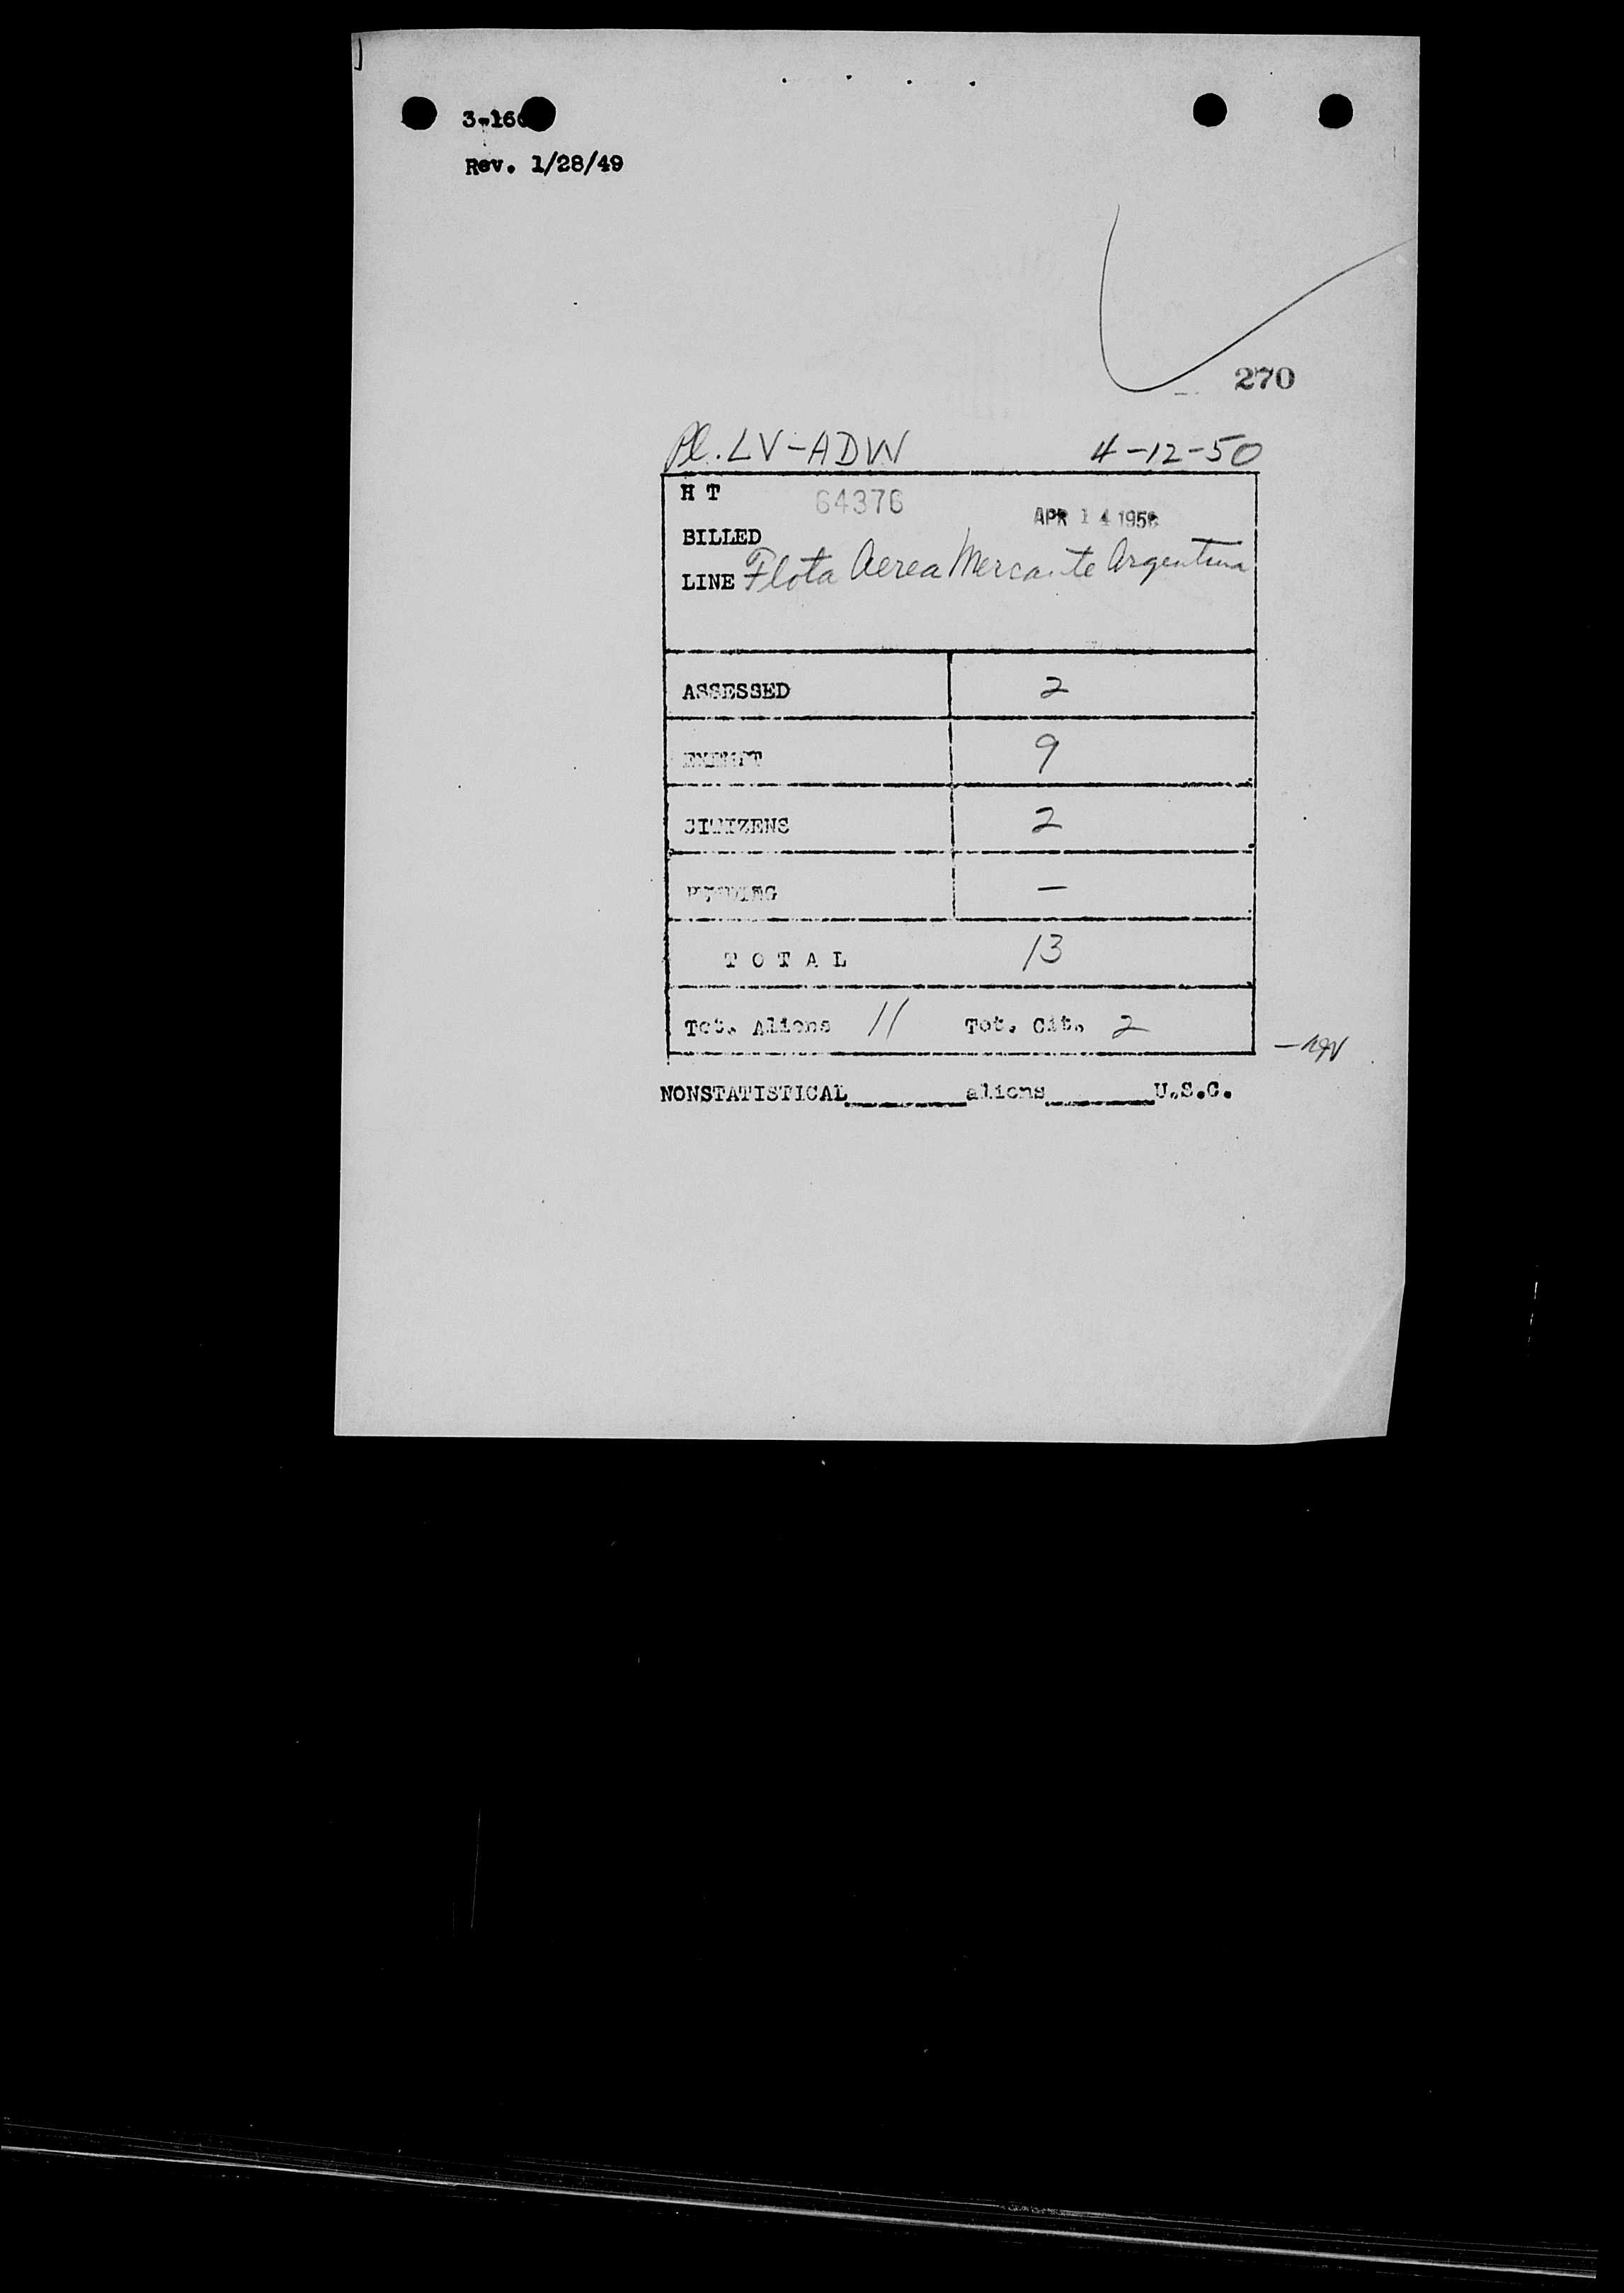 Rev. 1/28/49
270
Pl. LV-ADW 4-12-50
H T 64376
APR 14
BILLED
LINE Flota Aerea Mercante Argentina
ASSESSED 2
EXEMPT 9
CITIZENS 2
PENDING —
TOTAL 13
Tot. Aliens 11 Tot. Cit. 2
NONSTATISTICAL________aliens________U.S.C.